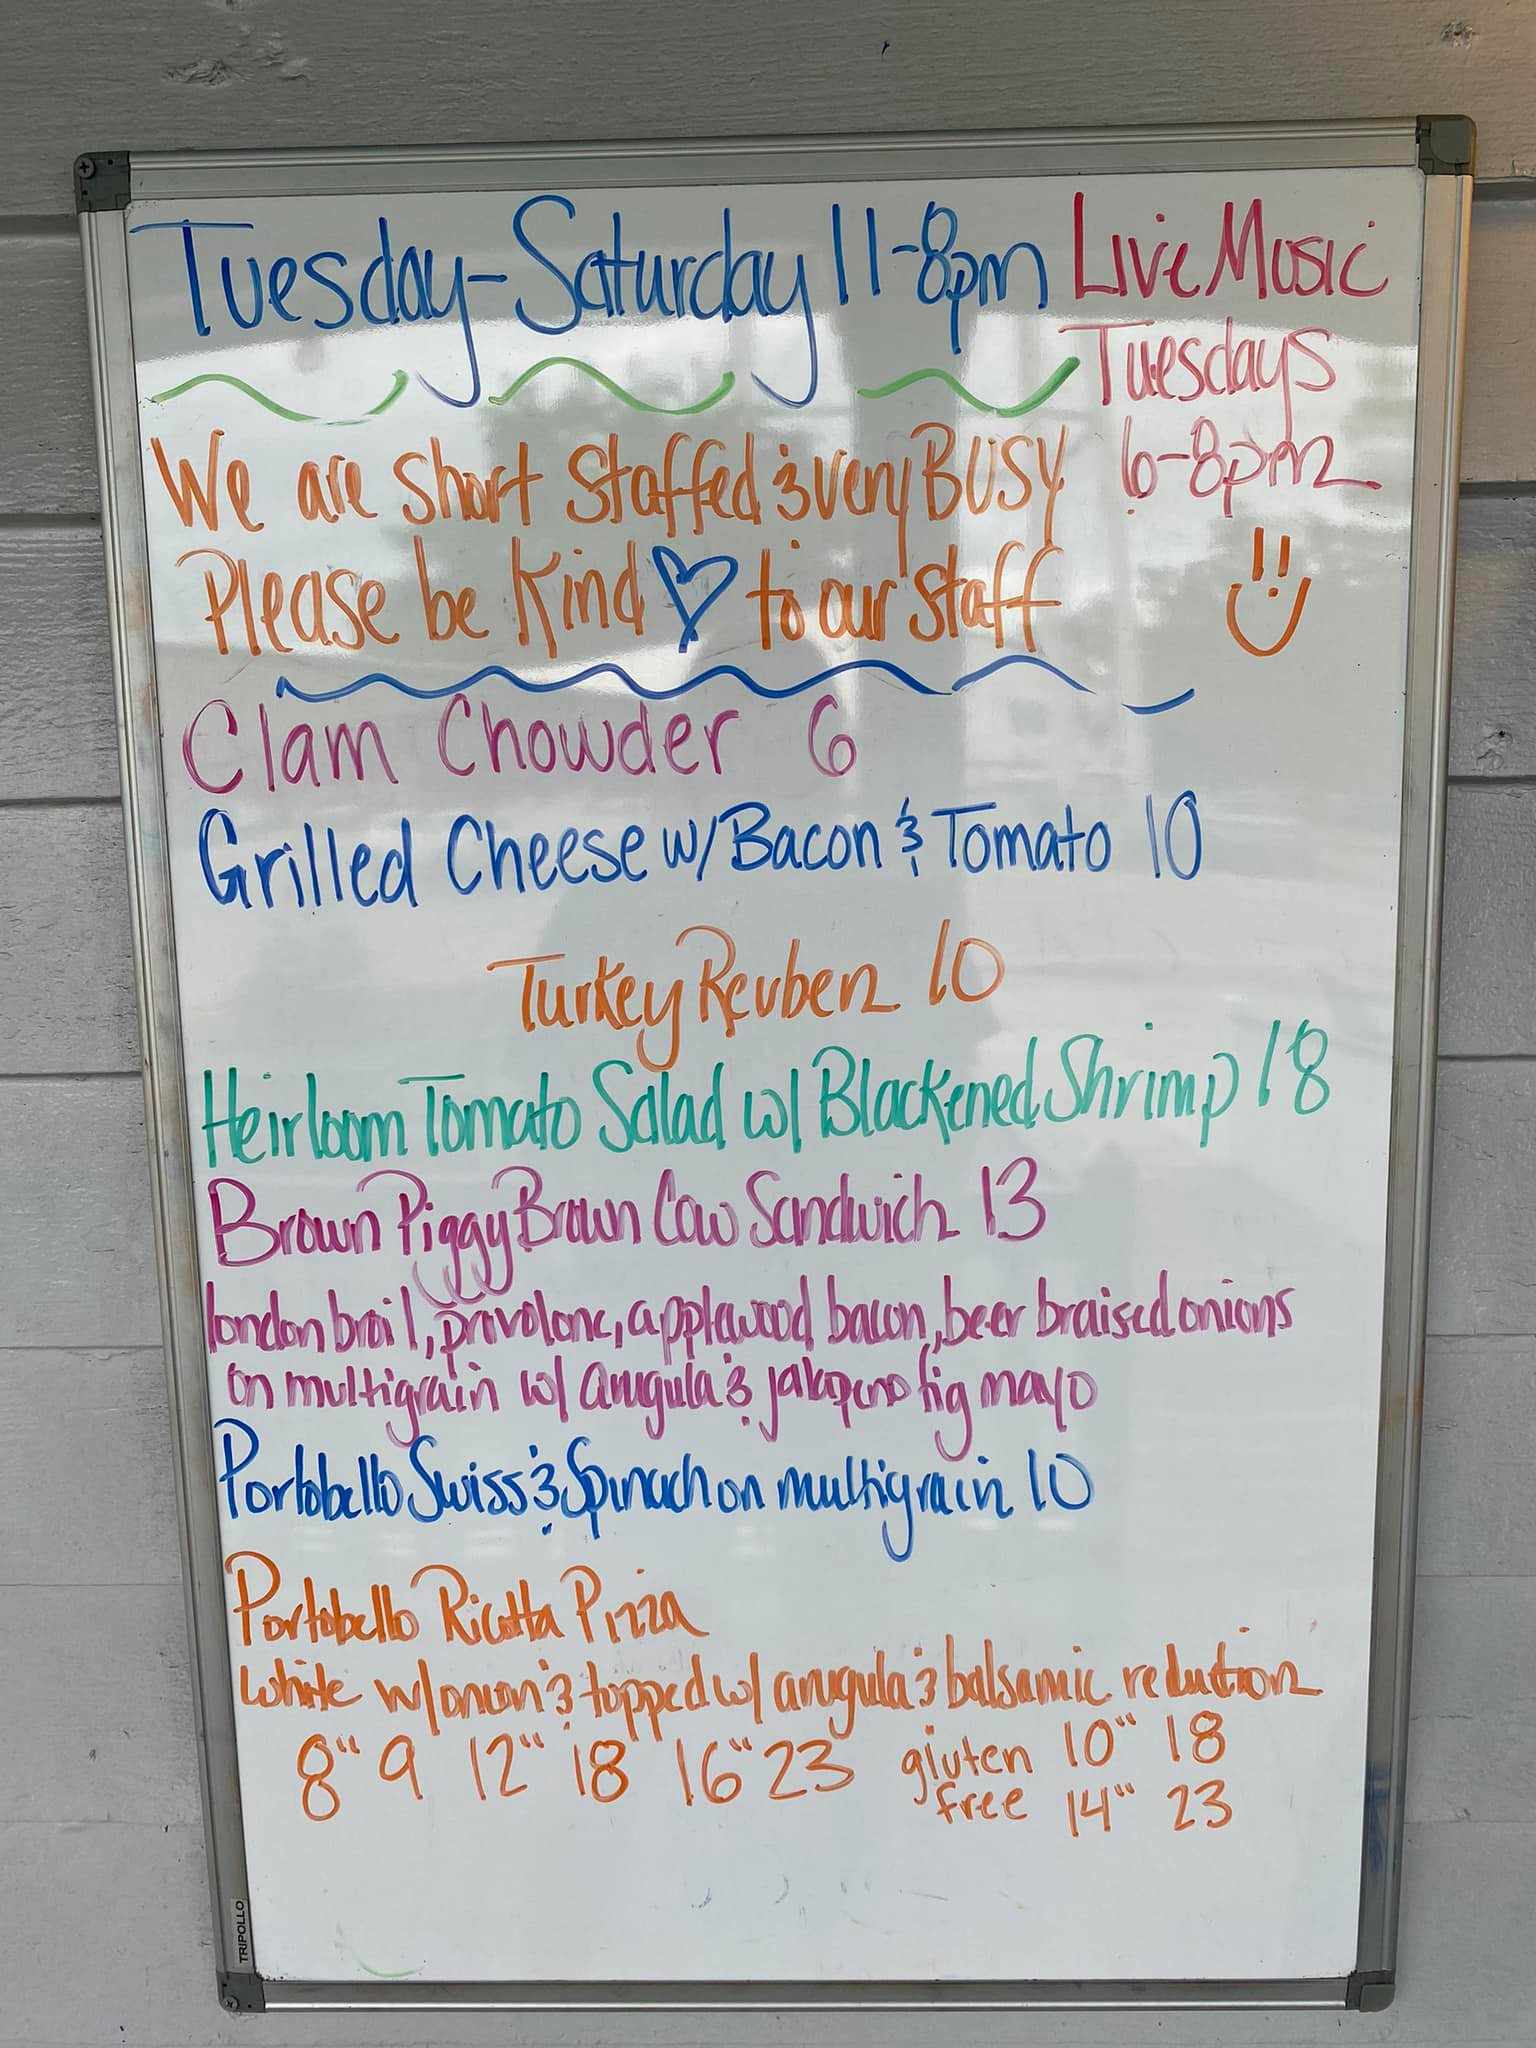 Tuesday-Saturday 11-8pm
Live Music
Tuesdays
6-8pm
We are short staffed & very BUSY
Please be kind to our staff
Clam Chowder 6
Grilled Cheese w/ Bacon & Tomato 10
Turkey Reuben 10
Heirloom Tomato Salad w/ Blackened Shrimp 18
Brown Piggy Brown Cow Sandwich 13
london broil, provolone, applewood bacon, beer braised onions
on multigrain w/ arugula & jalapeno fig mayo
Portobello Swiss & Spinach on multigrain 10
Portobello Ricotta Pizza
white w/ onion & topped w/ arugula & balsamic reduction
8" 9 12" 18 16" 23 gluten 10" 18
free 14" 23
TRIPOLLO